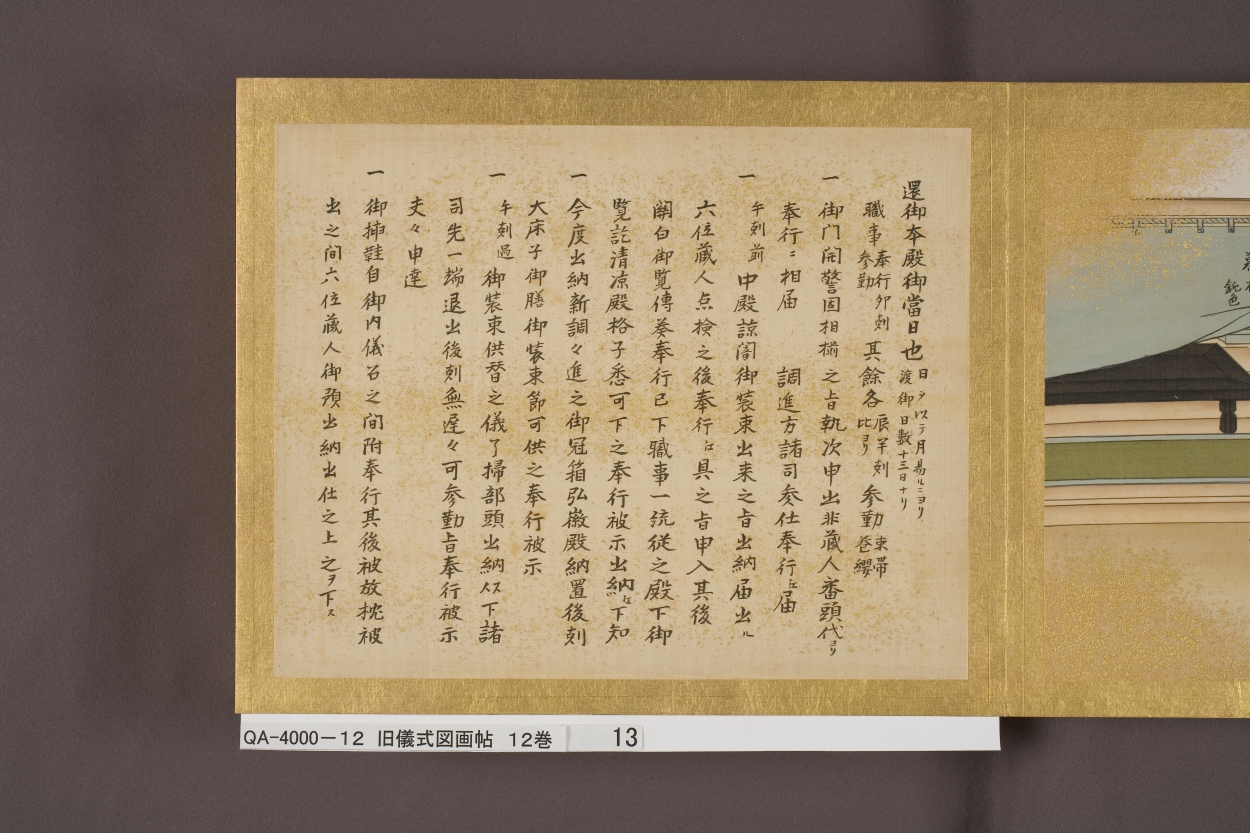 還御本殿御當日也 日ヲ以テ月易ルニヨリ 渡御日數十三日ナリ
職事 奉行卯刻 参勤 其餘各 辰半刻 比ヨリ 参勤 束帶 巻纓
一 御門開警固相揃之旨軌次申出非蔵人番頭代ヨリ
奉行ニ相届 調進方諸司参仕奉行江届
一 午刻前 中殿諒闇御装束出来之旨出納届出ル
六位蔵人点撿之後奉行江具之旨申入其後
關白御覧傳奏奉行已下職事一統従之殿下御
覧訖清凉殿格子悉可下之奉行被示出納江下知
一 今度出納新調々進之御冠箱弘徽殿納置後刻
大床子御膳御装束節可供之奉行被示
一 午刻過 御装束供替之儀了掃部頭出納以下諸
司先一端退出後刻無遅々可参勤旨奉行被示
夫々申達
一 御挿鞋自御内儀召之間附奉行其後被放枕被
出之間六位蔵人御預出納出仕之上之ヲ下ス
鈍色
QA-4000－12 旧儀式図画帖 12巻 13